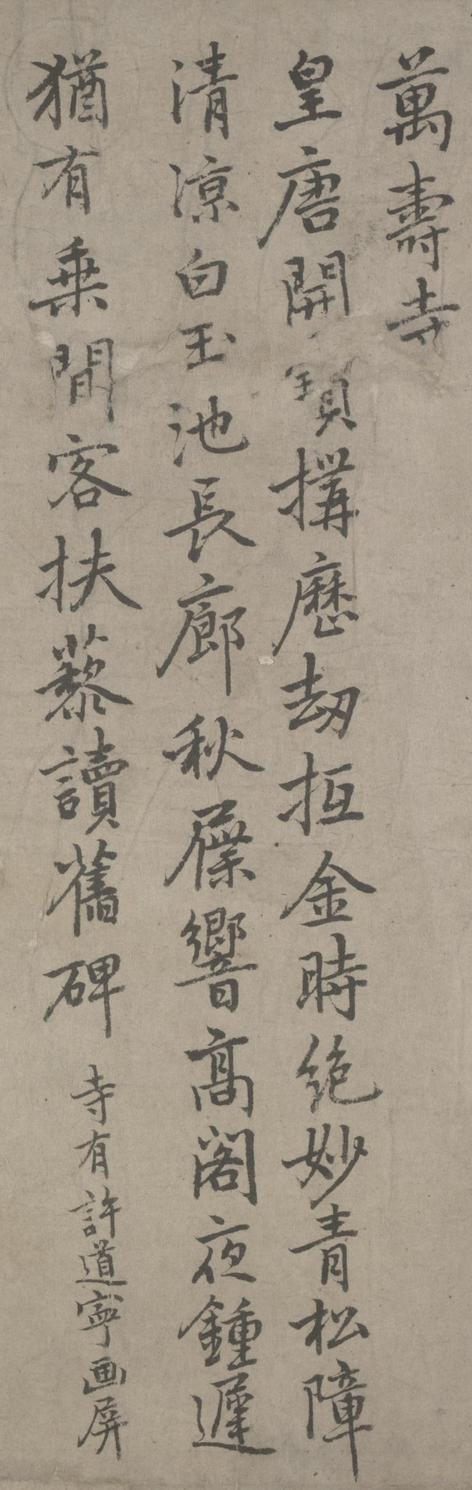 萬壽寺
皇唐開寶構歷劫抵金時絶妙青松障
清涼白玉池長廊秋屧響高閣夜鍾遲
猶有乗閒客扶藜讀舊碑
寺有許道寧画屏